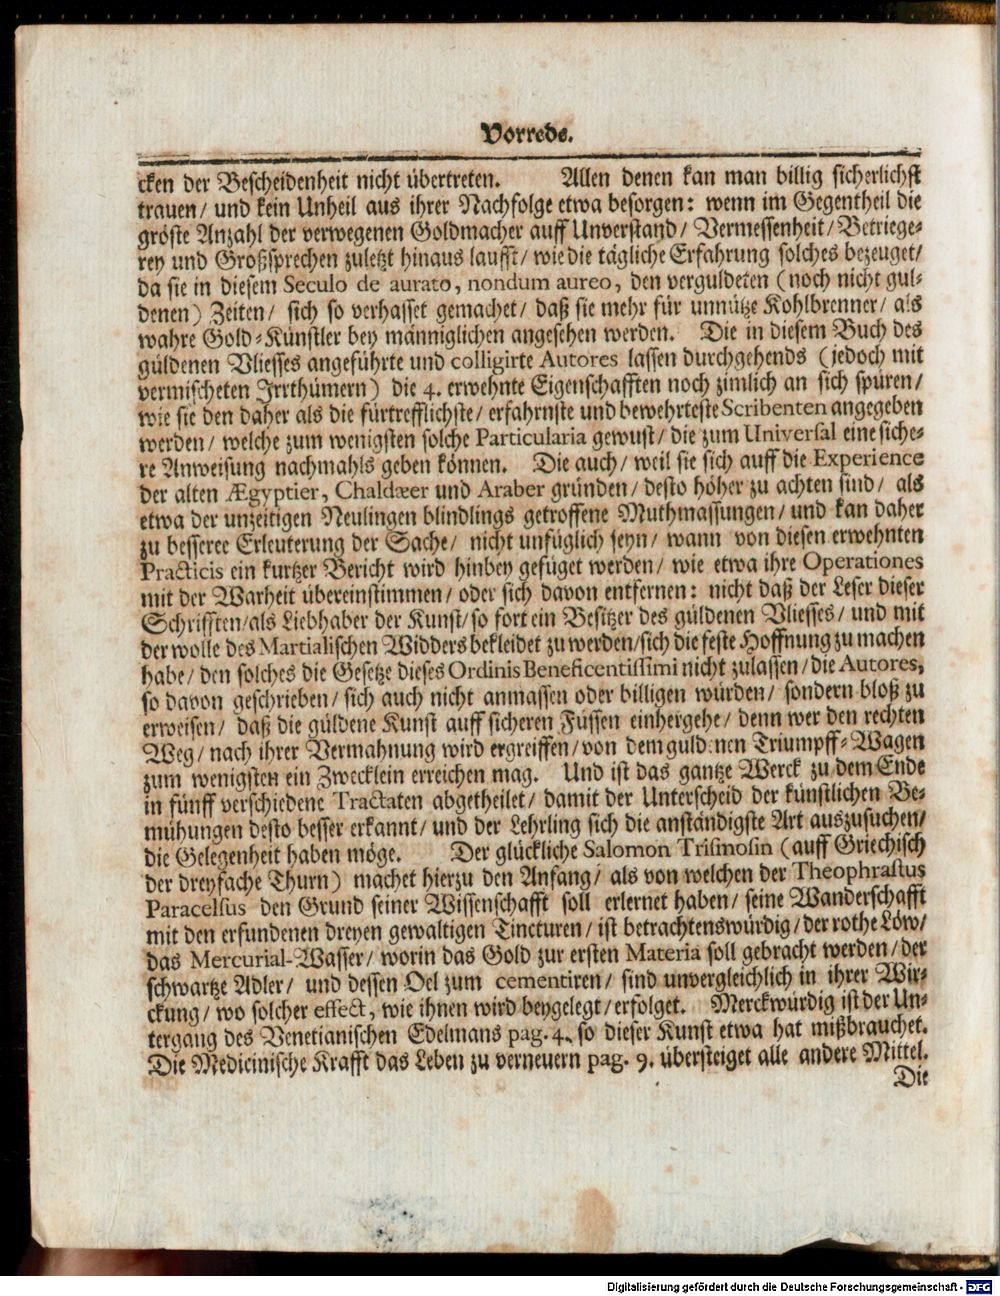 Vorrede.
cken der Bescheidenheit nicht übertreten. Allen denen kan man billig sicherlichst
trauen/ und kein Unheil aus ihrer Nachfolge etwa besorgen: wenn im Gegentheil die
gröste Anzahl der verwegenen Goldmacher auff Unverstand/ Vermessenheit/ Betriege-
rey und Großsprechen zuletzt hinaus laufft/ wie die tägliche Erfahrung solches bezeuget/
da sie in diesem Seculo de aurato, nondum aureo, den verguldeten (noch nicht gul-
denen) Zeiten/ sich so verhasset gemachet/ daß sie mehr für unnütze Kohlbrenner/ als
wahre Gold-Künstler bey männiglichen angesehen werden. Die in diesem Buch des
güldenen Vliesses angeführte und colligirte Autores lassen durchgehends (jedoch mit
vermischeten Irrthümern) die 4. erwehnte Eigenschafften noch zimlich an sich spüren/
wie sie den daher als die fürtrefflichste/ erfahrnste und bewehrteste Scribenten angegeben
werden/ welche zum wenigsten solche Particularia gewust/ die zum Universal eine siche-
re Anweisung nachmahls geben können. Die auch/ weil sie sich auff die Experience
der alten Ægyptier, Chaldæer und Araber gründen/ desto höher zu achten sind/ als
etwa der unzeitigen Neulingen blindlings getroffene Muthmassungen/ und kan daher
zu besserer Erleuterung der Sache/ nicht unfüglich seyn/ wann von diesen erwehnten
Practicis ein kurtzer Bericht wird hinbey gefüget werden/ wie etwa ihre Operationes
mit der Warheit übereinstimmen/ oder sich davon entfernen: nicht daß der Leser dieser
Schrifften/als Liebhaber der Kunst/so fort ein Besitzer des güldenen Vliesses/ und mit
der wolle des Martialischen Widders bekleidet zu werden/sich die feste Hoffnung zu machen
habe/ den solches die Gesetze dieses Ordinis Beneficentissimi nicht zulassen/ die Autores,
so davon geschrieben/ sich auch nicht anmassen oder billigen würden/ sondern bloß zu
erweisen/ daß die güldene Kunst auff sicheren Füssen einhergehe/ denn wer den rechten
Weg/ nach ihrer Vermahnung wird ergreiffen/ von dem guldenen Triumpff-Wagen
zum wenigsten ein Zwecklein erreichen mag. Und ist das gantze Werck zu dem Ende
in fünff verschiedene Tractaten abgetheilet/ damit der Unterscheid der künstlichen Be-
mühungen desto besser erkannt/ und der Lehrling sich die anständigste Art auszusuchen/
die Gelegenheit haben möge. Der glückliche Salomon Trismosin (auff Griechisch
der dreyfache Thurn) machet hierzu den Anfang/ als von welchen der Theophrastus
Paracelsus den Grund seiner Wissenschafft soll erlernet haben/ seine Wanderschafft
mit den erfundenen dreyen gewaltigen Tincturen/ ist betrachtenswürdig/ der rothe Löw/
das Mercurial-Wasser/ worin das Gold zur ersten Materia soll gebracht werden/ der
schwartze Adler/ und dessen Oel zum cementiren/ sind unvergleichlich in ihrer Wir-
ckung/ wo solcher effect, wie ihnen wird beygelegt/ erfolget. Merckwürdig ist der Un-
tergang des Venetianischen Edelmans pag. 4. so dieser Kunst etwa hat mißbrauchet.
Die Medicinische Krafft das Leben zu verneuern pag. 9. übersteiget alle andere Mittel.
Die
Digitalisierung gefördert durch die Deutsche Forschungsgemeinschaft - DFG